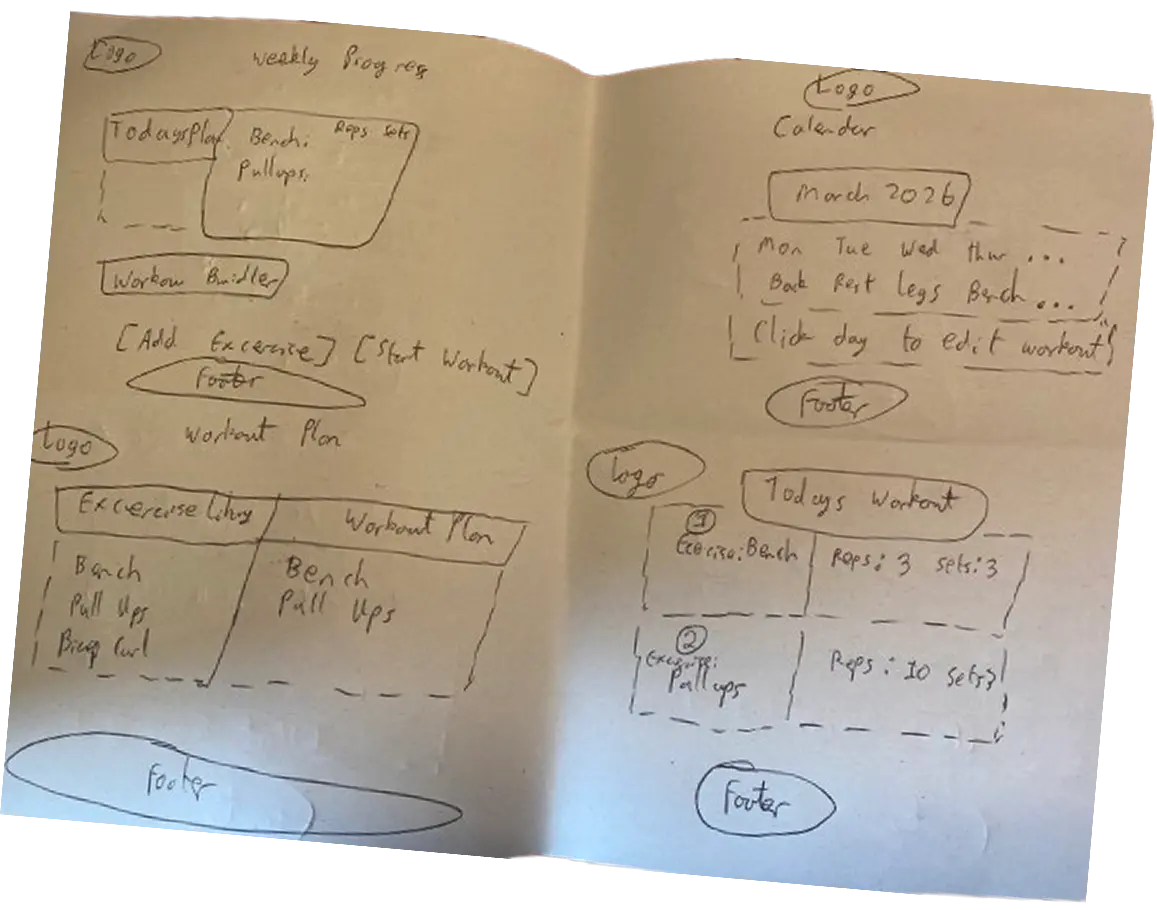 Logo
weekly Progress
Todays Plan
Reps Sets
Bench:
Pullups:
Workout Buidler
[Add Excercise] [Start Workout]
Footer
Logo
Calender
March 2026
Mon Tue Wed thur ...
Back Rest legs Bench ...
Click day to edit workout
Footer
Logo
Workout Plan
Workout Plan
Bench
Pull Ups
Bicep Curl
Bench
Pull Ups
Footer
Logo
Todays Workout
1
Exercise: Bench
Reps: 3 sets: 3
2
Pullups
Reps: 10 sets 3
Footer